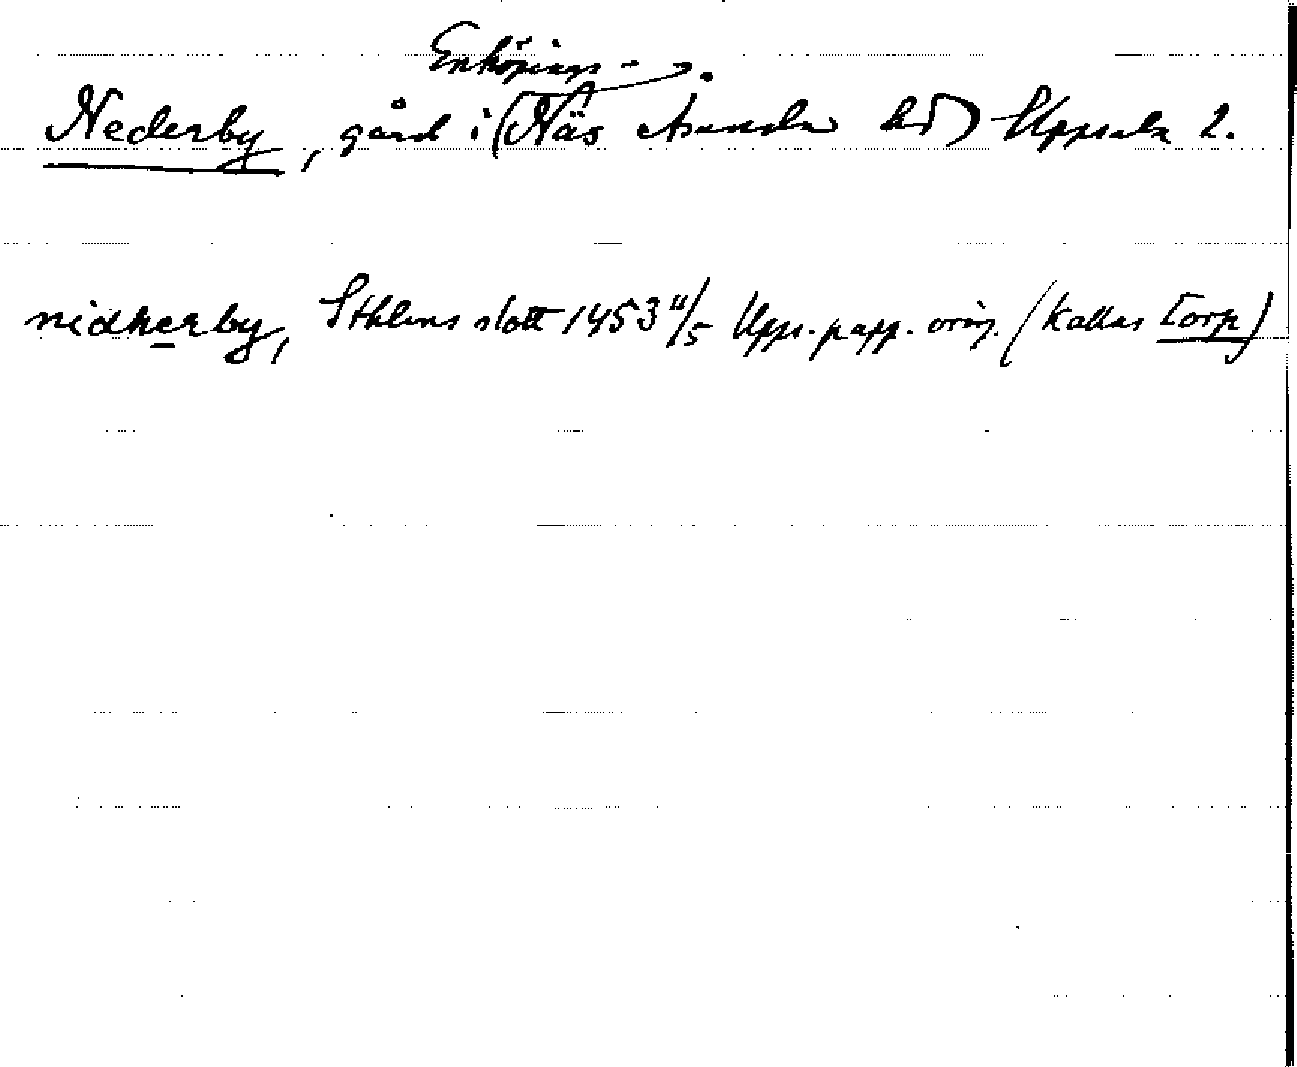 Enköpings-
Nederby, gård i (Näs Asunda hd) Uppsala l.
nidherby, Sthlms slott 1453 11/5 Upps. papp. orig. (kallas Torp)